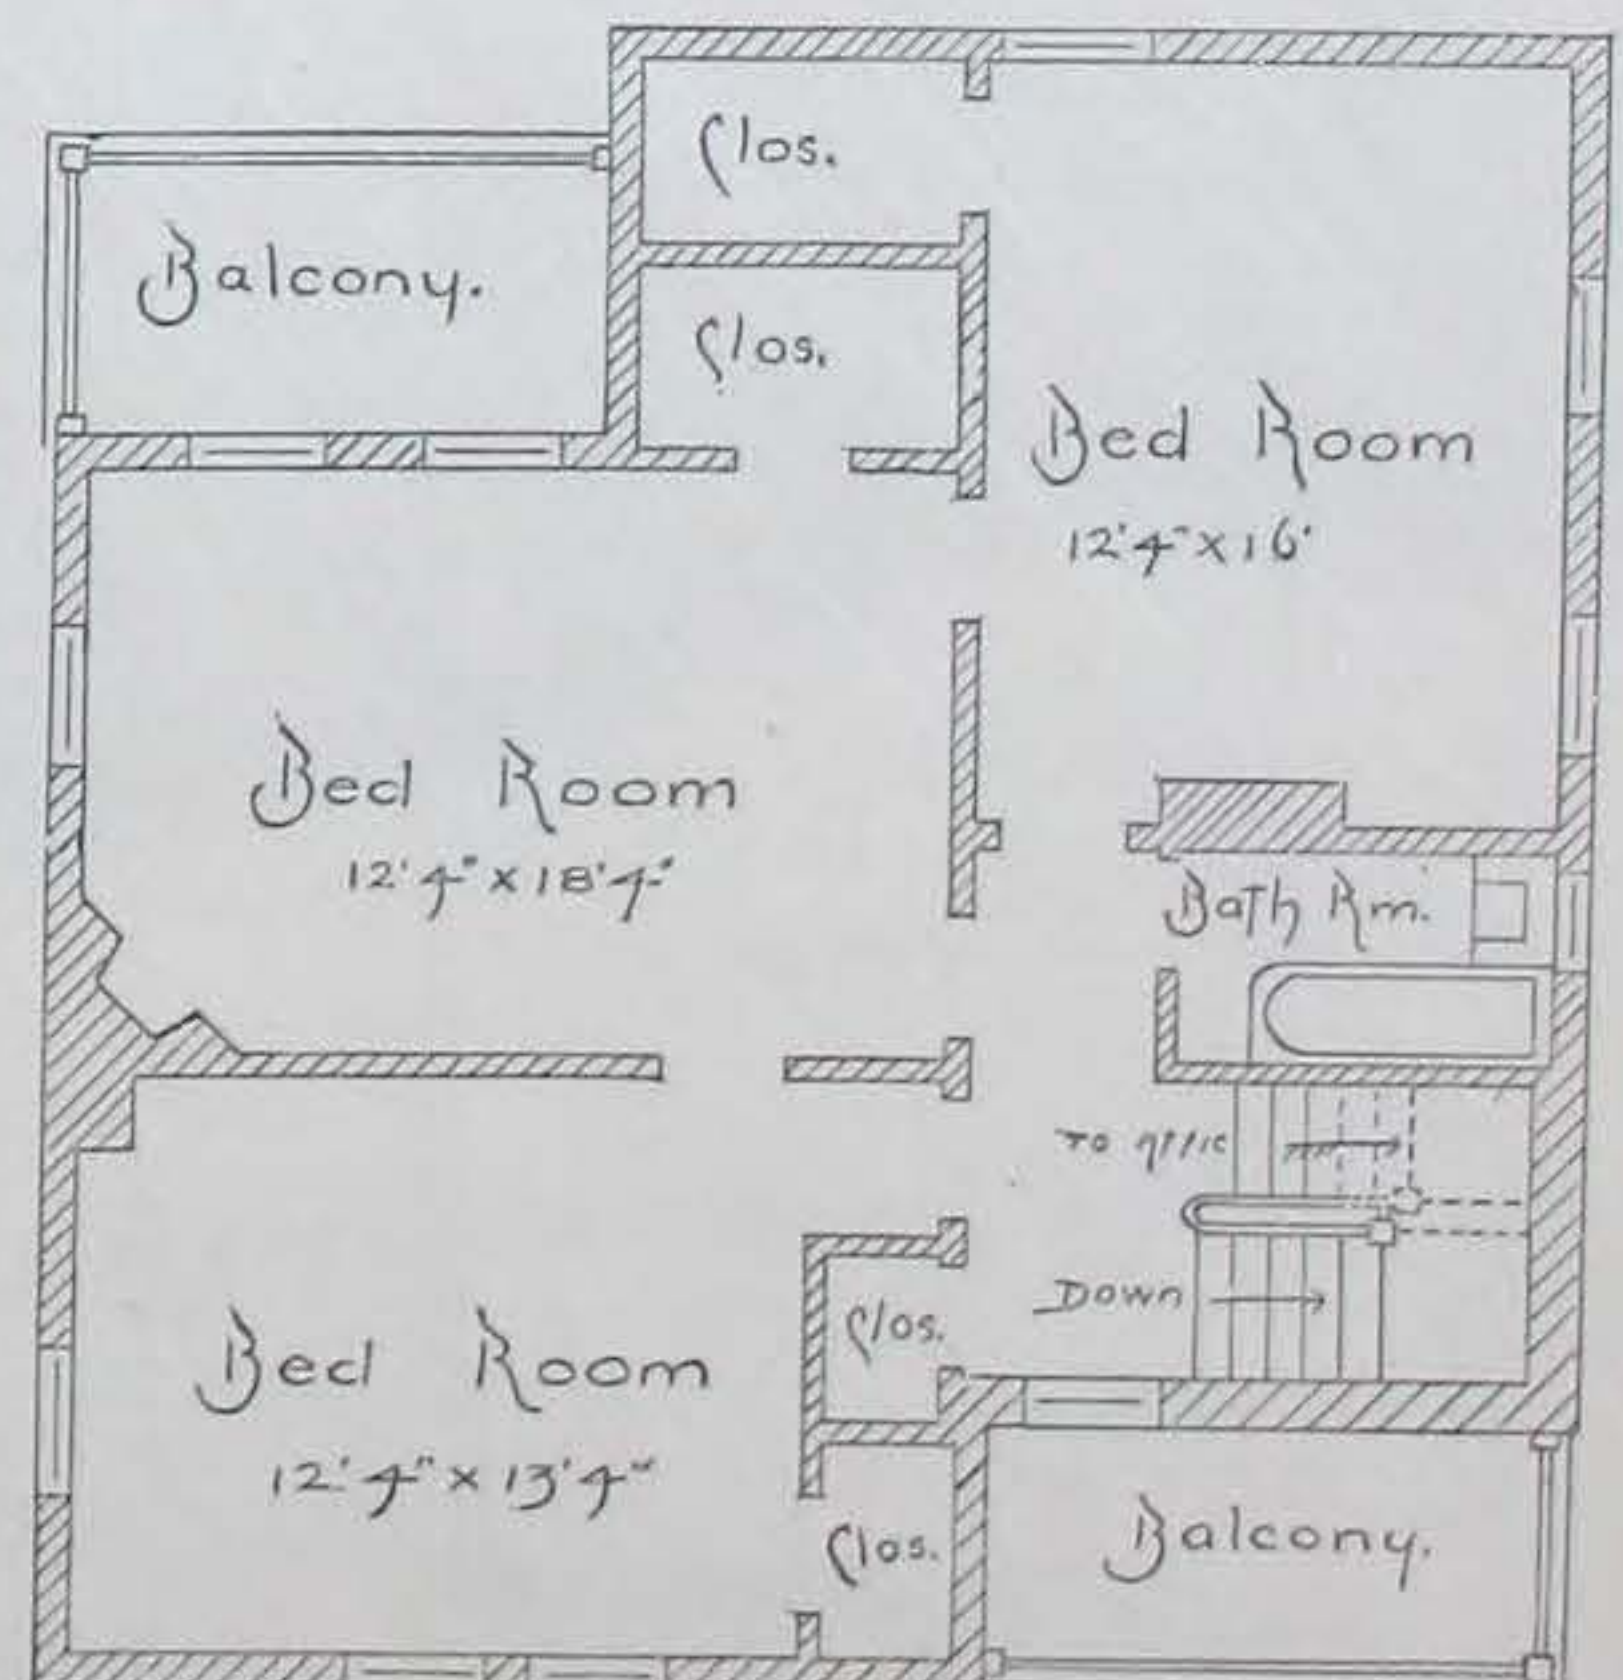 Clos.
Balcony.
Clos.
Bed Room
12'4" x 16'
Bed Room
12'4" x 18'4"
Bath Rm.
To Attic
Down
Clos.
Bed Room
12'4" x 13'4"
Clos.
Balcony.